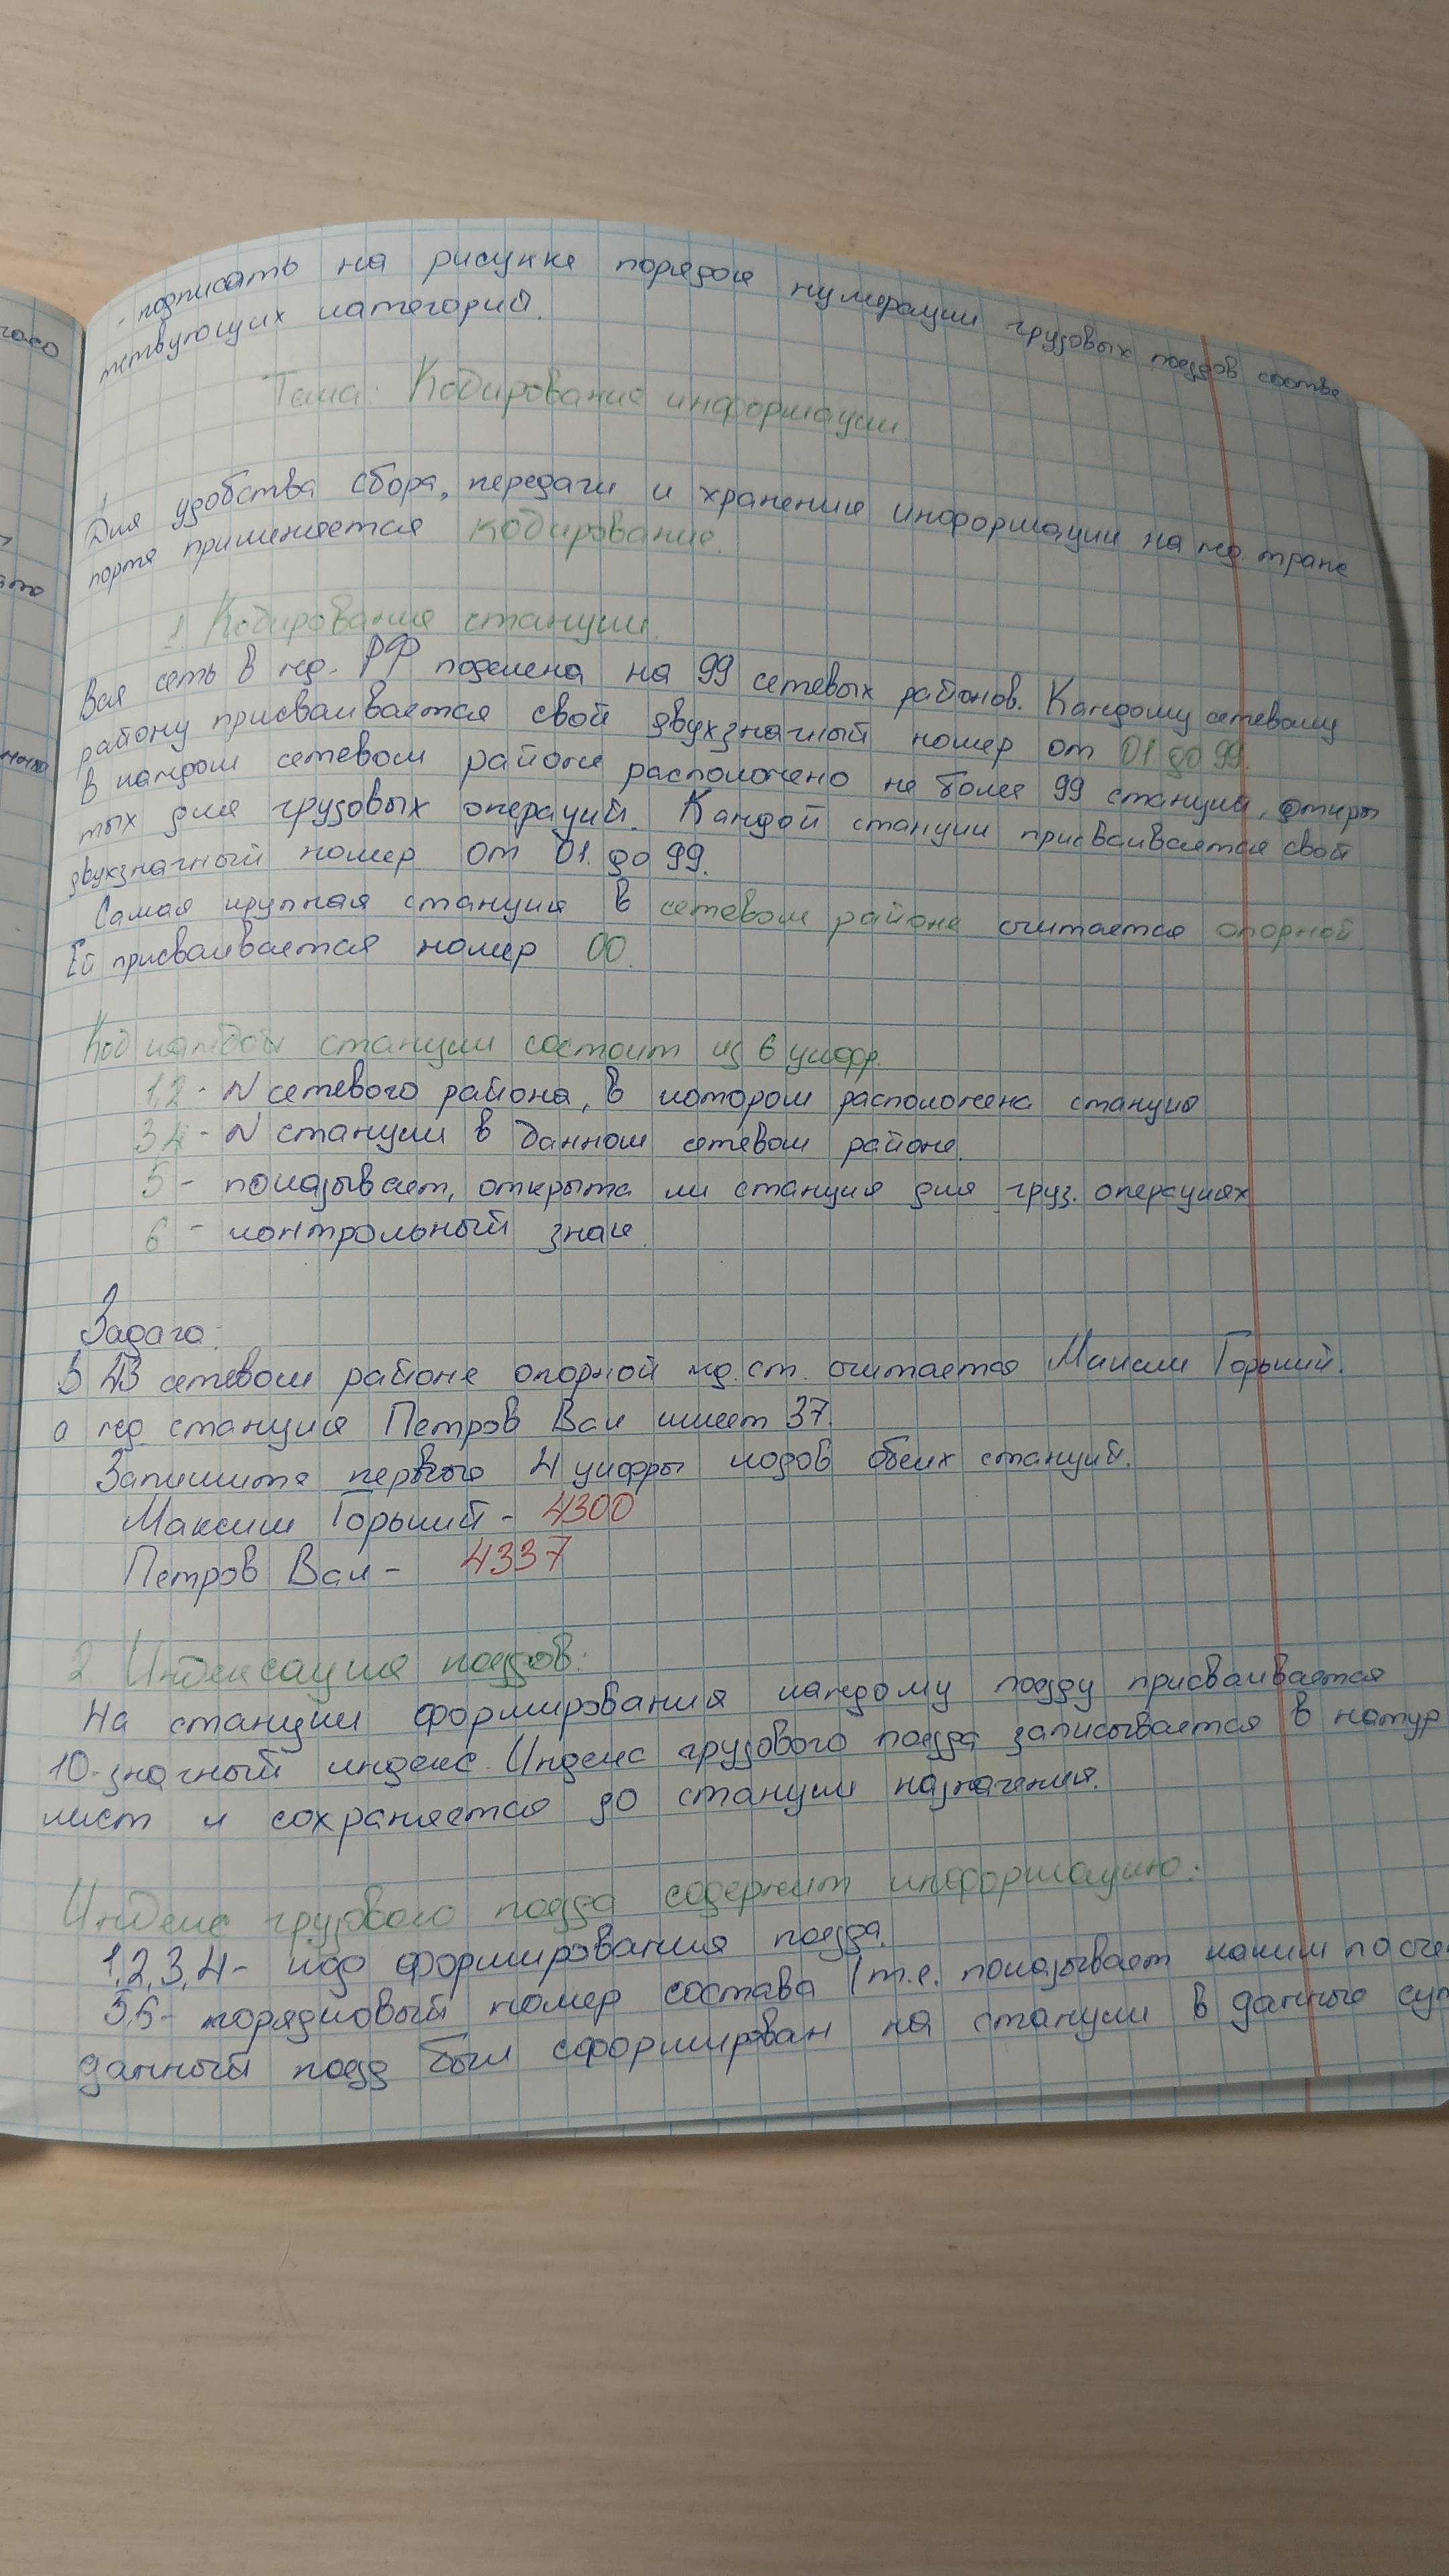 - подписать на рисунке порядок нумерации грузовых поездов соотве
тствующих категорий.
Тема: Кодирование информации.
Для удобства сбора, передачи и хранения информации на жд. транс
порте применяется кодирование.
1. Кодирование станции.
Вся сеть в жд. РФ поделена на 99 сетевых районов. Каждому сетевому
району присваивается свой двухзначный номер от 01 до 99.
В каждом сетевом районе расположено не более 99 станций, откры
тых для грузовых операций. Каждой станции присваивается свой
двухзначный номер от 01. до 99.
Самая крупная станция в сетевом районе считается опорной
Ей присваивается номер 00.
Код каждой станции состоит из 6 цифр.
1,2 - N сетевого района, в котором расположена станция
3,4 - N станции в данном сетевом районе.
5 - показывает, открыта ли станция для груз. операциях
6 - контрольный знак.
Задача:
В 43 сетевом районе опорной жд. ст. считается Максим Горький.
а жд станция Петров Вал имеет 37.
Запишите первые 4 цифры кодов обеих станций.
Максим Горький - 4300
Петров Вал - 4337
2. Индексация поездов:
На станции формирования каждому поезду присваивается
10-значный индекс. Индекс грузового поезда записывается в натур
лист и сохраняется до станции назначения.
Индекс грузового поезда содержит информацию:
1,2,3,4 - код формирования поезда.
5,6 - порядковый номер состава (т.е. показывает каким по сче
данный поезд был сформирован на станции в данные сут